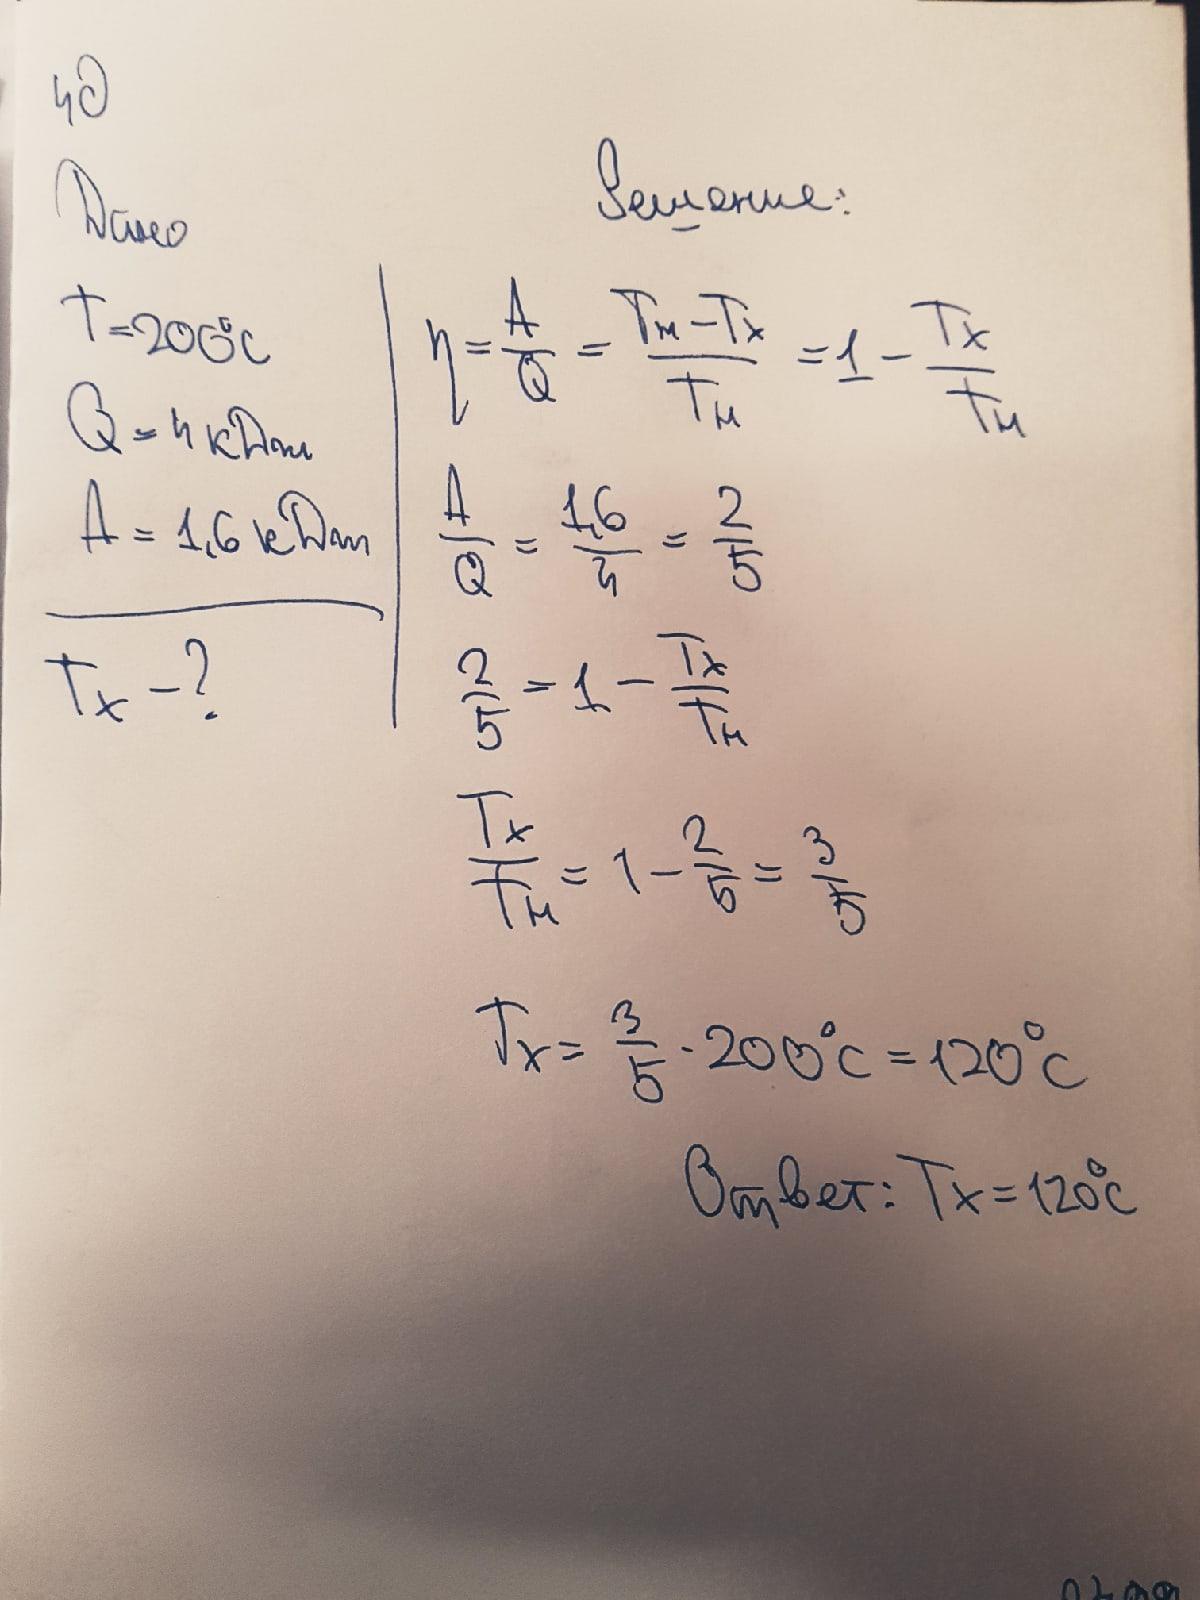 40
Дано
Решение:
T=200°C
Q = 4 кДж
A = 1,6 кДж
Tx - ?
η = A/Q = (Tн - Tx)/Tн = 1 - Tx/Tн
A/Q = 1,6/4 = 2/5
2/5 = 1 - Tx/Tн
Tx/Tн = 1 - 2/5 = 3/5
Tx = 3/5 · 200°C = 120°C
Ответ: Tx = 120°C